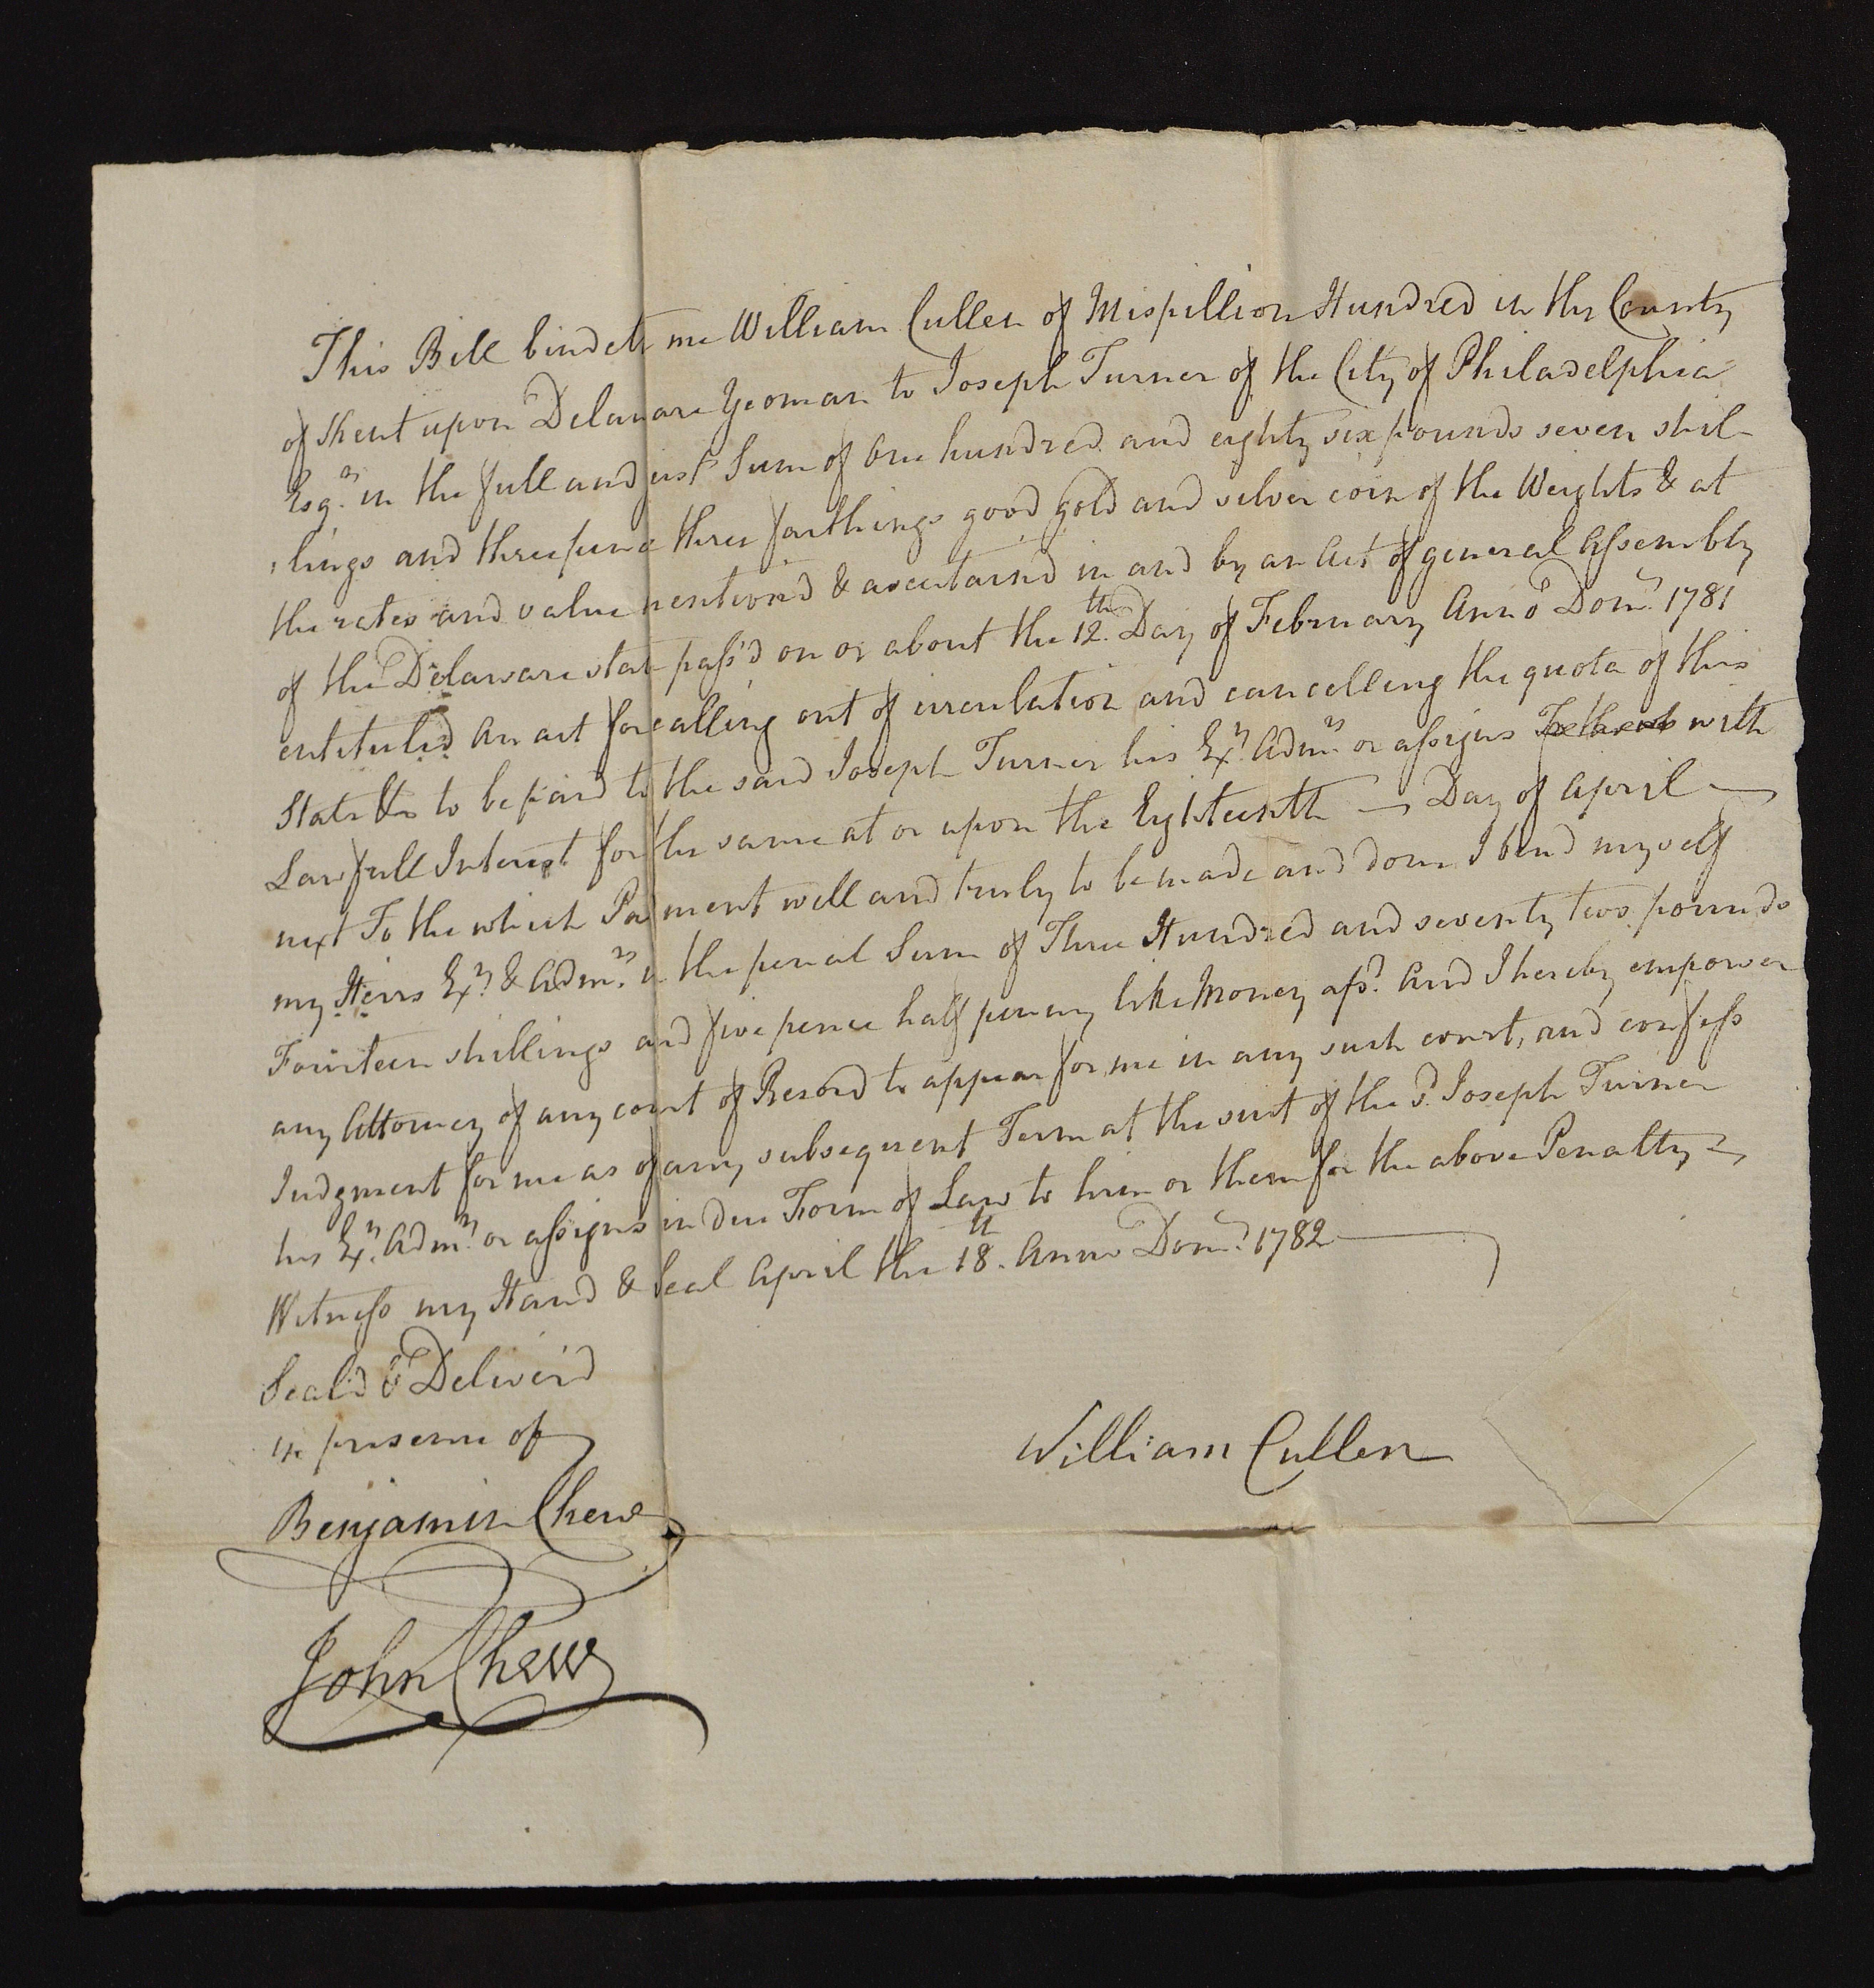 This Bill bindeth me William Cullen of Mispillion Hundred in the County
of Kent upon Delaware Yeoman to Joseph Turner of the City of Philadelphia
Esqr. in the full and just Sum of One hundred and eighty six pounds seven shil-
lings and threepence three farthings good gold and silver coin of the Weights & at
the rates and value mention'd & ascertain'd in and by an Act of general Assembly
of the Delaware state pass'd on or about the 12th. Day of February Anno Domi. 1781
entituled An act for calling out of circulation and cancelling the quota of this
State &c to be paid to the said Joseph Turner his Exrs. Admrs. or assigns with
Lawfull Interest for the same at or upon the Eighteenth — Day of April —
next To the which Payment well and truly to be made and done I bind myself
my Heirs Exrs. & Admrs. in the penal Sum of Three Hundred and seventy two pounds
Fourteen shillings and five pence half penny like Money afsd. And I hereby empower
any Attorney of any court of Record to appear for me in any such court, and confess
Judgment for me as of any subsequent Term at the suit of the sd. Joseph Turner
his Exrs. Admrs. or assigns in due Form of Law to him or them for the above Penalty —
Witness my Hand & Seal April the 18th. Anno Domi. 1782
Seal'd & Deliver'd
in presence of
William Cullen
Benjamin Chew
John Chew